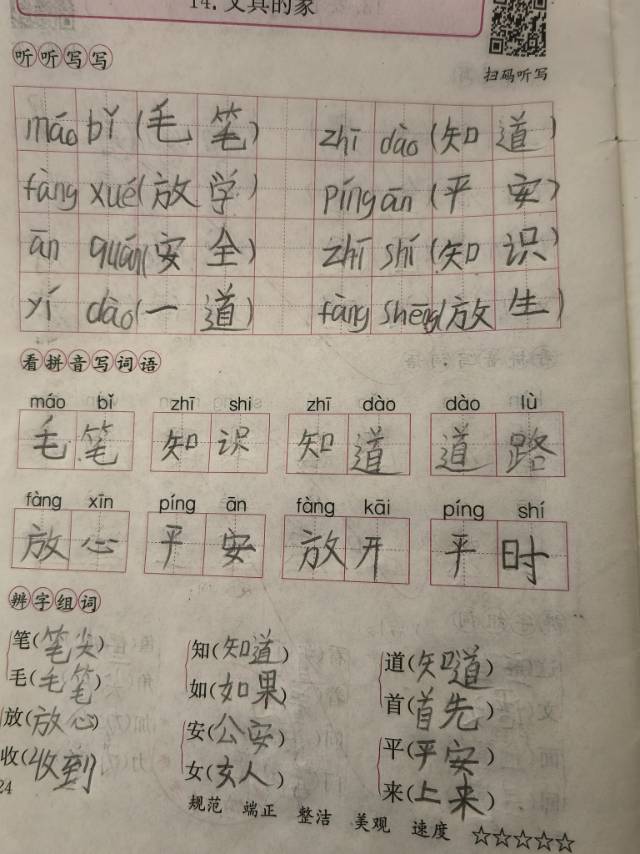 14.文具的家
听听写写
扫码听写
máo bǐ(毛笔) zhī dào(知道)
fàng xué(放学) píng ān(平安)
ān quán(安全) zhī shí(知识)
yí dào(一道) fàng shēng(放生)
看拼音写词语
máo bǐ zhī shi zhī dào dào lù
毛笔 知识 知道 道路
fàng xīn píng ān fàng kāi píng shí
放心 平安 放开 平时
辨字组词
笔(笔尖) 知(知道) 道(知道)
毛(毛笔) 如(如果) 首(首先)
放(放心) 安(公安) 平(平安)
收(收到) 女(女人) 来(上来)
24
规范 端正 整洁 美观 速度 ☆☆☆☆☆